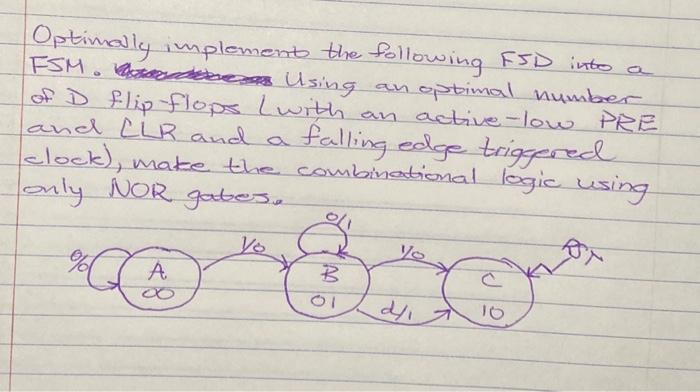 Optimally implement the following FSD into a
FSM. Using an optimal number
of D flip-flops (with an active-low PRE
and CLR and a falling edge triggered
clock), make the combinational logic using
only NOR gates.
0/1
1/0
1/0
A
B
C
00
01
10
d/1